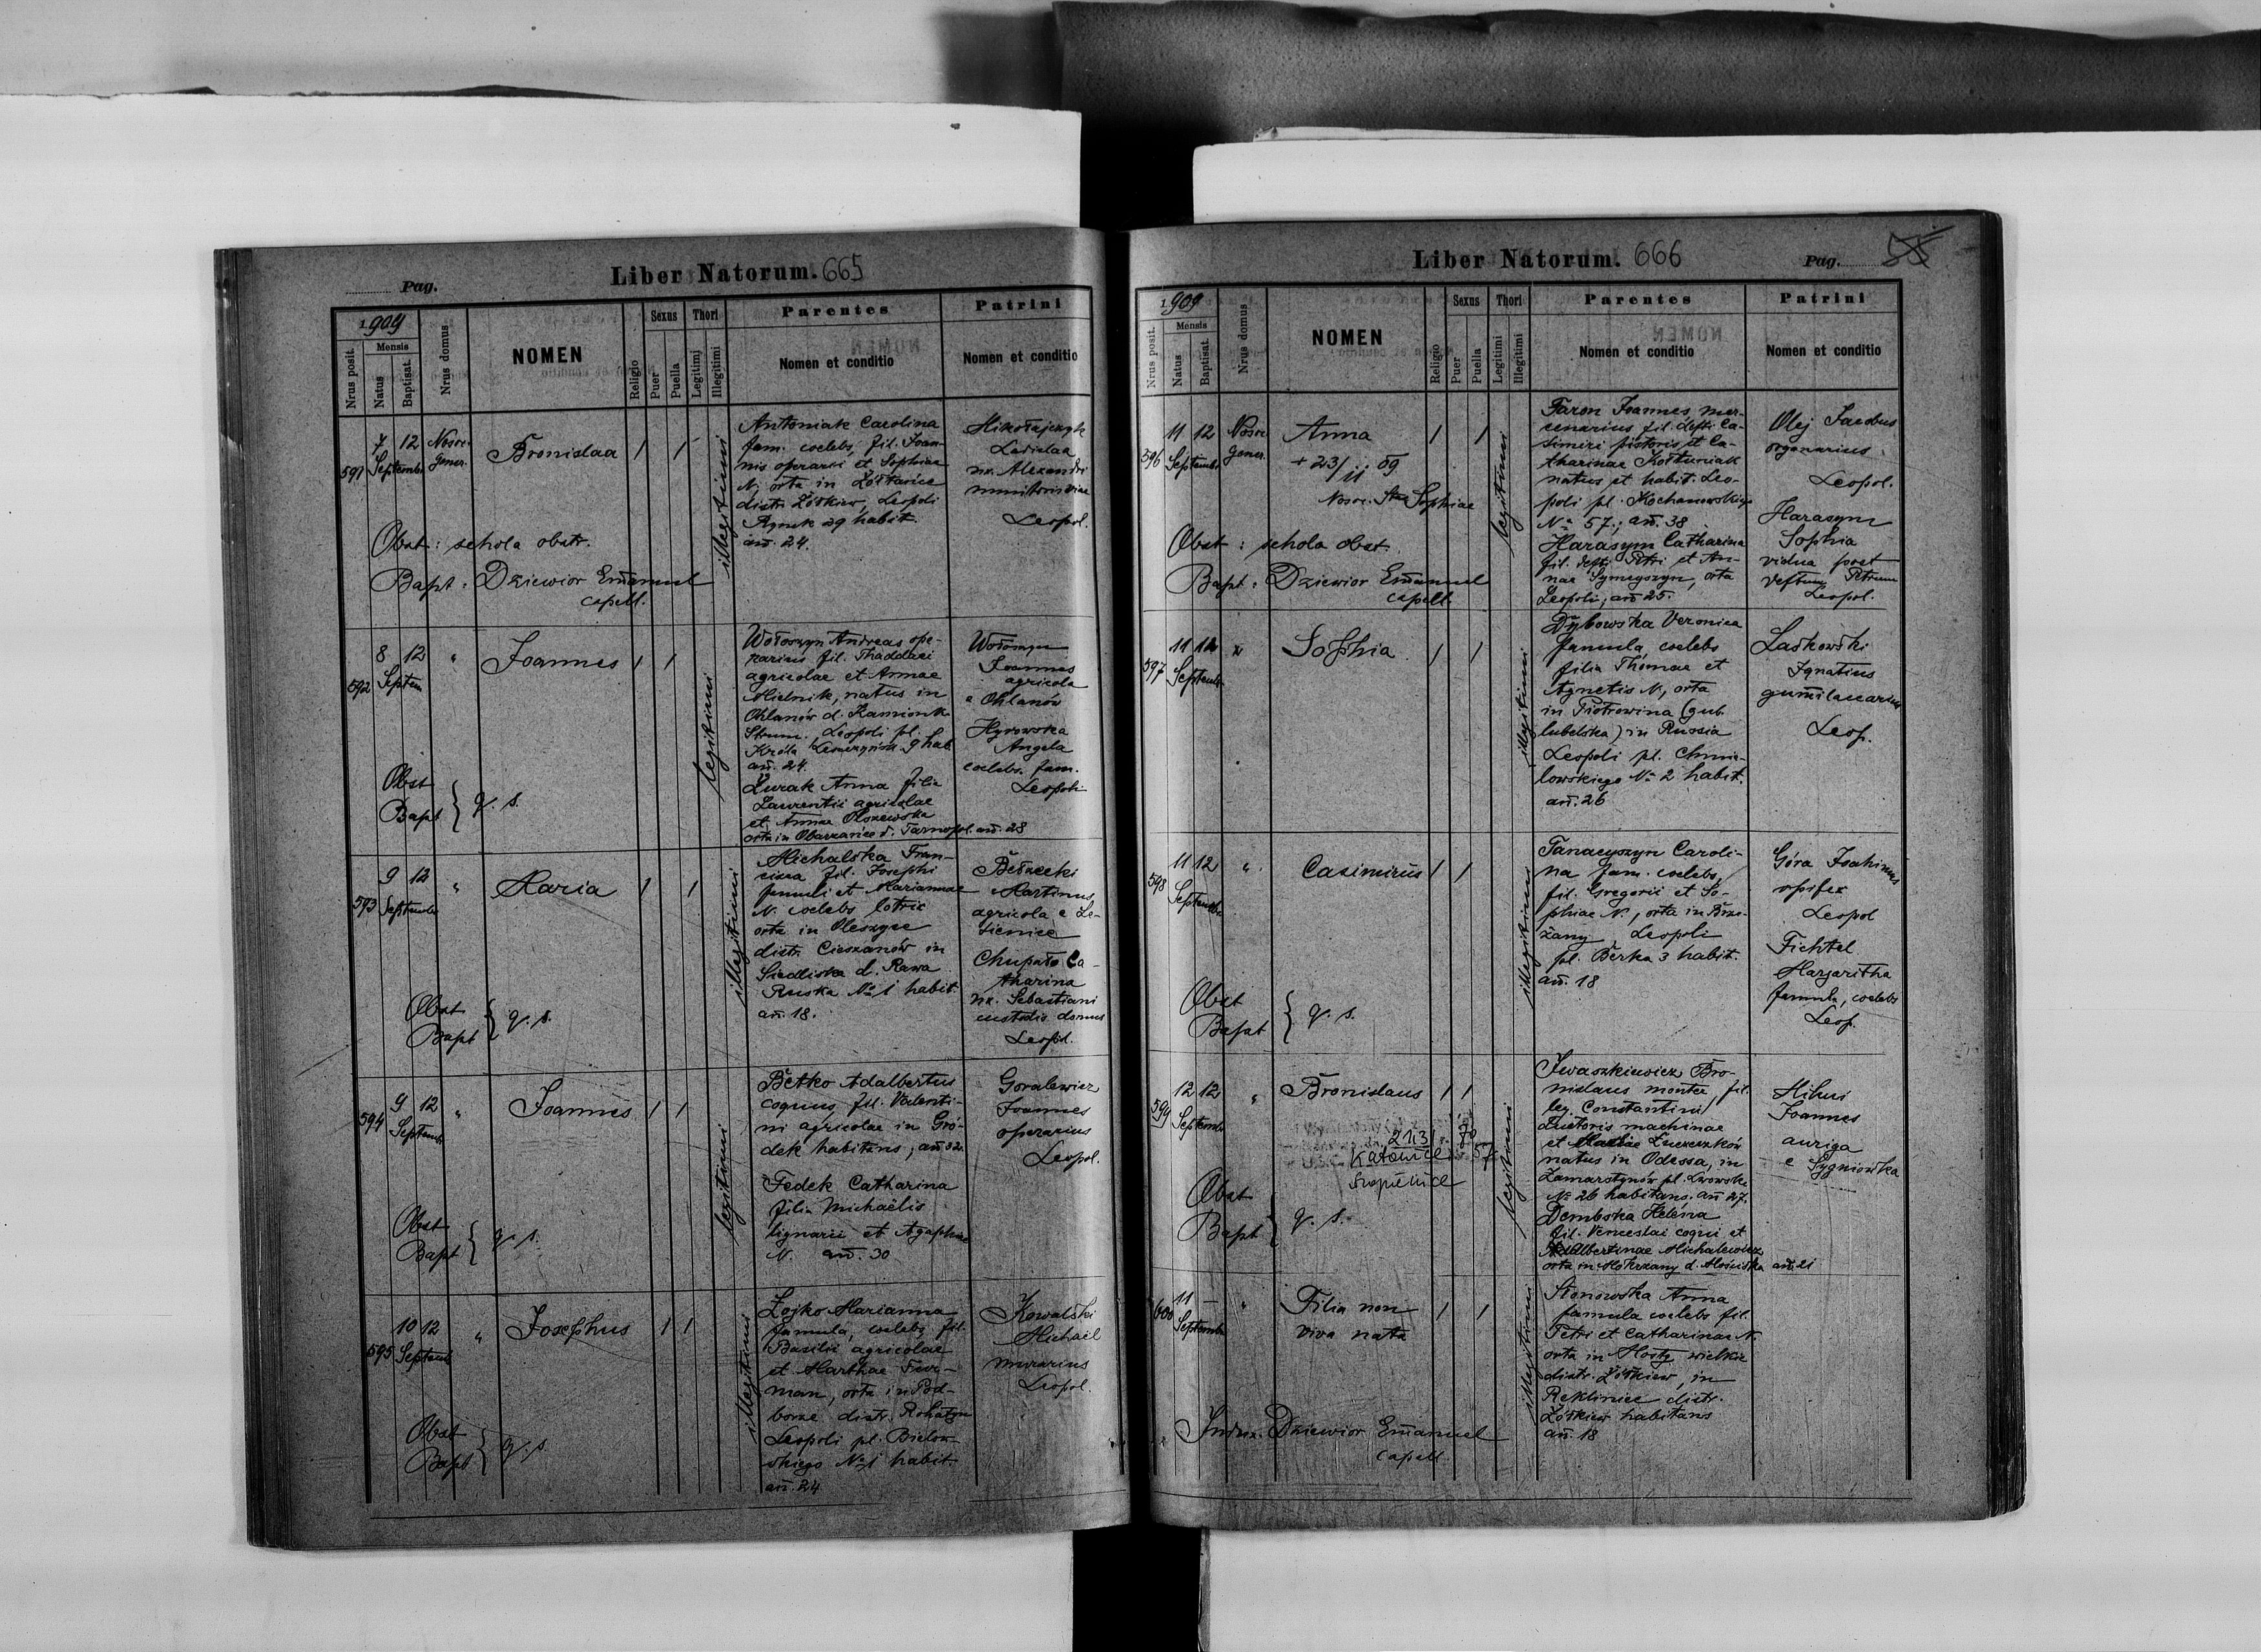 Pag.
Liber Natorum. 665
1909
Nrus posit.
Mensis
Natus
Baptisat.
Nrus domus
NOMEN
Religio
Sexus
Puer
Puella
Thori
Legitimi
Illegitimi
Parentes
Nomen et conditio
Patrini
Nomen et conditio
591
7 12
Septembr
Nosoc.
gener.
Bronislaa
illegitimi
Antoniak Carolina
fam. coelebs, fil. Joan-
nis operarii et Sophiae
N; orta in Żółtańce
distr. Żółkiew, Leopoli
Rynek 29 habit.
añ. 24.
Mikołajczyk
Ladislaa
ux. Alexandri
Leopol.
Obst: schola obstr.
Bapt: Dziewior Emanuel
capell.
592
8 12
Septem
"
Joannes
legitimi
Wołoszyn Andreas ope-
rarius fil. Thaddaei
agricolae et Annae
Mielnik, natus in
Ohlanów d. Kamionk.
Strum. Leopoli pl.
Króla Leszczyńsk. 9 hab.
añ. 24.
Żurak Anna filia
Laurentii agricolae
et Annae Olszewska
orta in Obarzańce d. Tarnopol. añ. 28
Wołoszyn
Joannes
agricola
e Ohlanów
Hyrowska
Angela
coelebs. fam.
Leopoli
Obst
Bapt } q. s.
593
9 12
Septembr
"
Maria
illegitimi
Michalska Fran-
cisca fil. Josephi
famuli et Mariannae
N. coelebs lotrix
orta in Oleszyce
distr. Cieszanów in
Siedliska d. Rawa
Ruska No 1 habit.
añ. 18.
Bełzecki
Martinus
agricola e Ze-
Chupało Ca-
tharina
ux. Sebastiani
custodis domus
Leopol.
Obst
Bapt } q. s.
594
9 12
Septemb
"
Joannes
legitimi
Betko Adalbertus
coquus, fil. Valenti-
ni agricolae in Gró-
dek habitans, añ 32.
Fedek Catharina
filia Michaëlis
lignarii et Agaphiae
N. añ. 30
Goralewicz
Joannes
operarius
Leopol.
Obst
Bapt } q. s.
595
10 12
Septemb
"
Josephus
illegitimi
Zojko Marianna
famula, coelebs fil.
Basilii agricolae
et Marthae Fur-
man, orta in Pod-
borze distr. Rohatyn
Leopoli pl. Bielow-
skiego No 1 habit
añ. 24
Kowalski
Michaël
murarius
Leopol.
Obst
Bapt } q. s.
Liber Natorum. 666
Pag. 55
1909
Nrus posit.
Mensis
Natus
Baptisat.
Nrus domus
NOMEN
Religio
Sexus
Puer
Puella
Thori
Legitimi
Illegitimi
Parentes
Nomen et conditio
Patrini
Nomen et conditio
596
11 12
Septembr
Nosoc
gener.
Anna
+ 23/11 09
Nosoc. Stae Sophiae
legitimi
Faron Joannes, mer-
cenarius fil. defti Ca-
simiri pistoris et Ca-
tharinae Kołtuniak
natus et habit. Leo-
poli pl. Kochanowskiego
No 57; añ. 38
Harasym Catharina
fil. defti Petri et An-
nae Symyszyn, orta
Leopoli, añ 25.
Olej Jacobus
organarius
Leopol.
Harasym
Sophia
vidua post
deftum Petrum
Leopol.
Obst: schola obst.
Bapt: Dziewior Emanuel
capell.
597
11 12
Septembr
"
Sophia
illegitimi
Dybowska Veronica
famula, coelebs
filia Thomae et
Agnetis N, orta
in Piotrowina (gub.
lubelska) in Russia
Leopoli pl. Chmie-
lowskiego No 2 habit.
añ. 26
Laskowski
Ignatius
Leop.
598
11 12
Septembr
"
Casimirus
illegitimi
Panacyszyn Caroli-
na fam. coelebs,
fil. Gregorii et So-
phiae N, orta in Brze-
żany Leopoli
pl. Berka 3 habit.
añ. 18
Góra Joahimus
opifex
Leopol
Fichtel
Margaritha
famula, coelebs
Leop.
Obst
Bapt } q. s.
599
12 12
Septemb
"
Bronislaus
2113 70
Katowice 57
Szopienice
legitimi
Iwaszkiewicz Bro-
nislaus monter, fil.
leg. Constantini
ductoris machinae
natus in Odessa, in
Zamarstynów pl. Lwowska
No 26 habitans. añ 27.
Dembska Helena
fil. Venceslai coqui et
Albertinae Michalewicz
orta in Mokrzany d. Mościska añ. 21
Mihus
Joannes
auriga
e Sygniówka
Obst
Bapt } q. s.
600
11 —
Septembr
"
Filia non
viva nata
illegitimi
Stonowska Anna
famula coelebs fil.
Petri et Catharinae N.
orta in Mosty wielkie
distr. Żółkiew, in
Reklinice distr.
Żółkiew habitans
añ. 18
Dziewior Emanuel
capell.